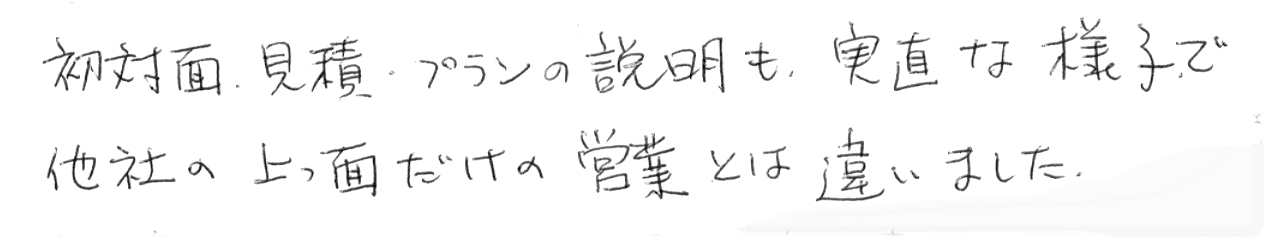 初対面、見積・プランの説明も、実直な様子で
他社の上っ面だけの営業とは違いました。